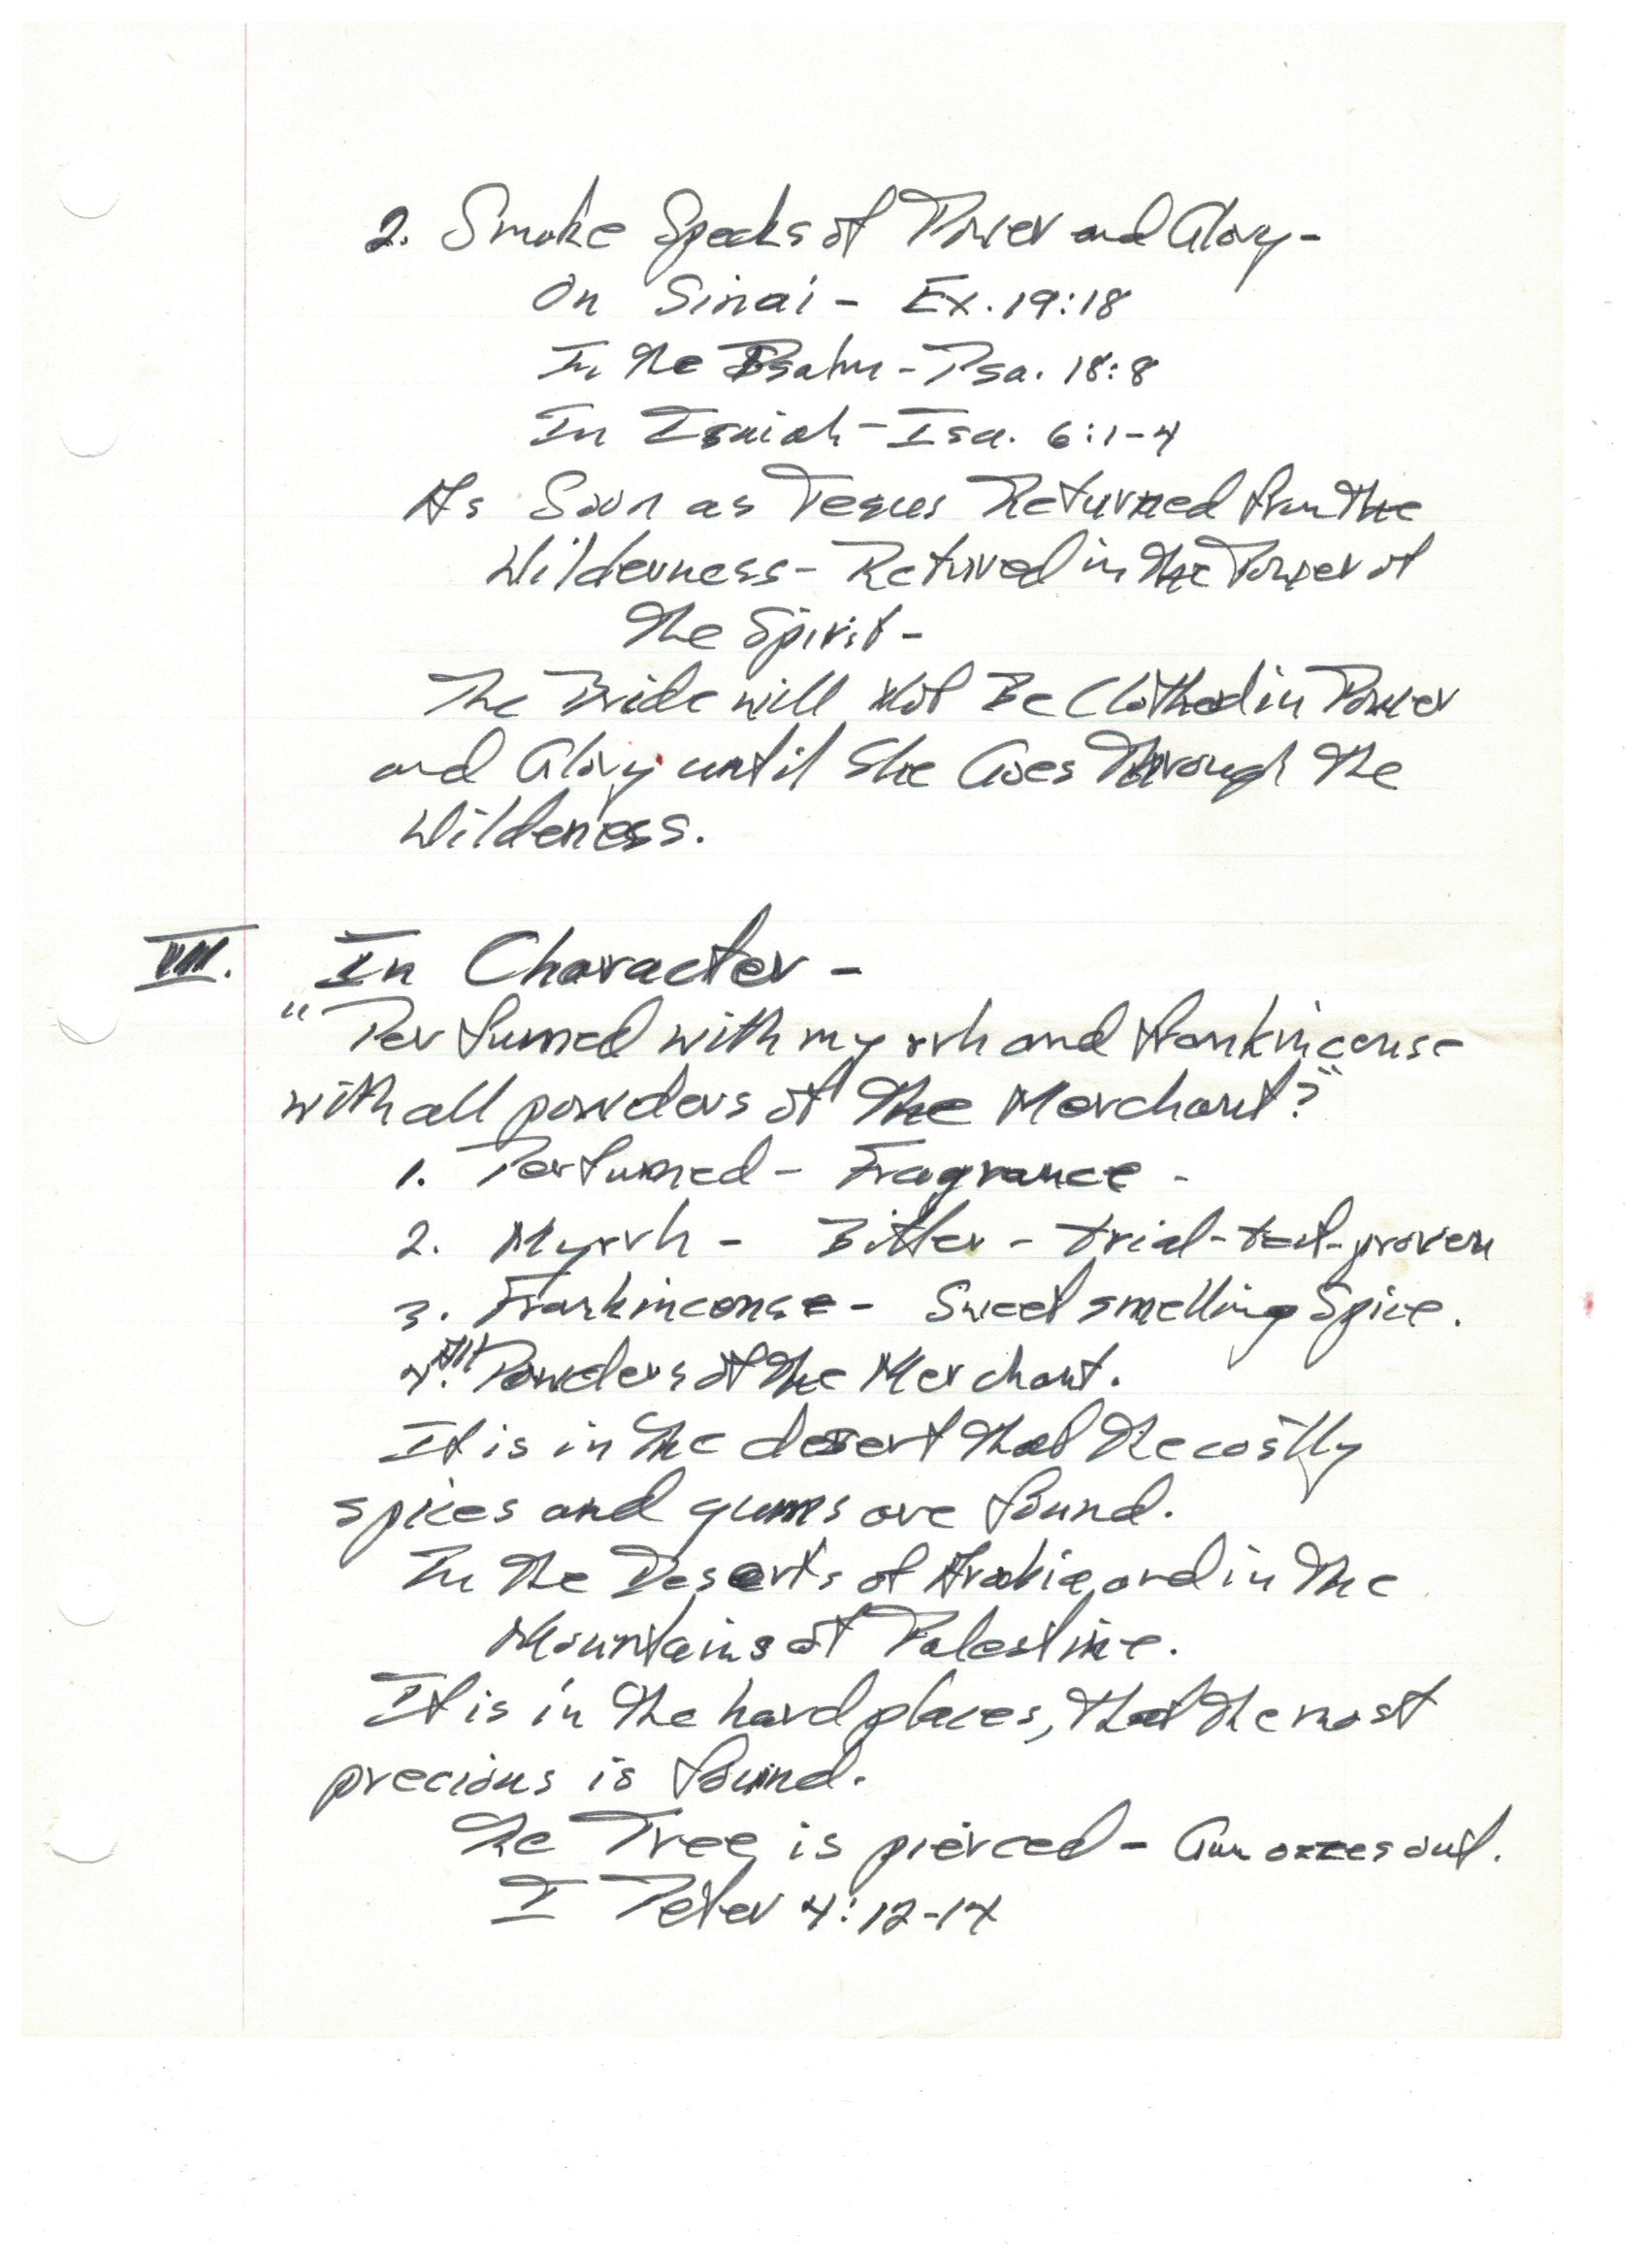 2. Smoke Speaks of Power and Glory-
On Sinai - Ex. 19:18
In the Psalm - Psa. 18:8
In Isaiah - Isa. 6:1-4
As Soon as Jesus Returned from the
Wilderness - Retured in the Power of
the Spirit -
The Bride will Not Be Clothed in Power
and Glory until She Goes Through the
Wildeness.
VII. In Character -
"Perfumed with myrrh and frankincense
with all powders of the Merchant?"
1. Perfumed - Fragrance -
2. Myrrh - Bitter - trial - test - proven
3. Frankincense - Sweet smelling Spice.
4. All Powders of the Merchant.
It is in the desert that the costly
spices and gums are found.
In the Deserts of Arabia, and in the
Mountains of Palestine.
It is in the hard places, that the most
precious is found.
The Tree, is pierced - Gum oozes out.
I Peter 4:12-14